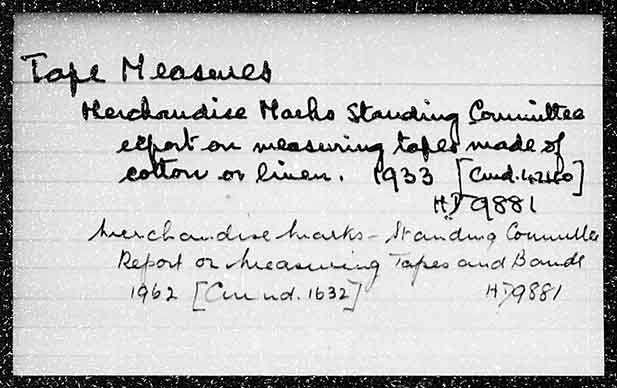 Tape Measures
Merchandise Marks Standing Committee
report on measuring tapes made of
cotton or linen. 1933 [Cmd.
HD9881
Merchandise Marks - Standing Committee
Report on Measuring Tapes and Bands
1962 [Cmnd. 1632]
HD9881